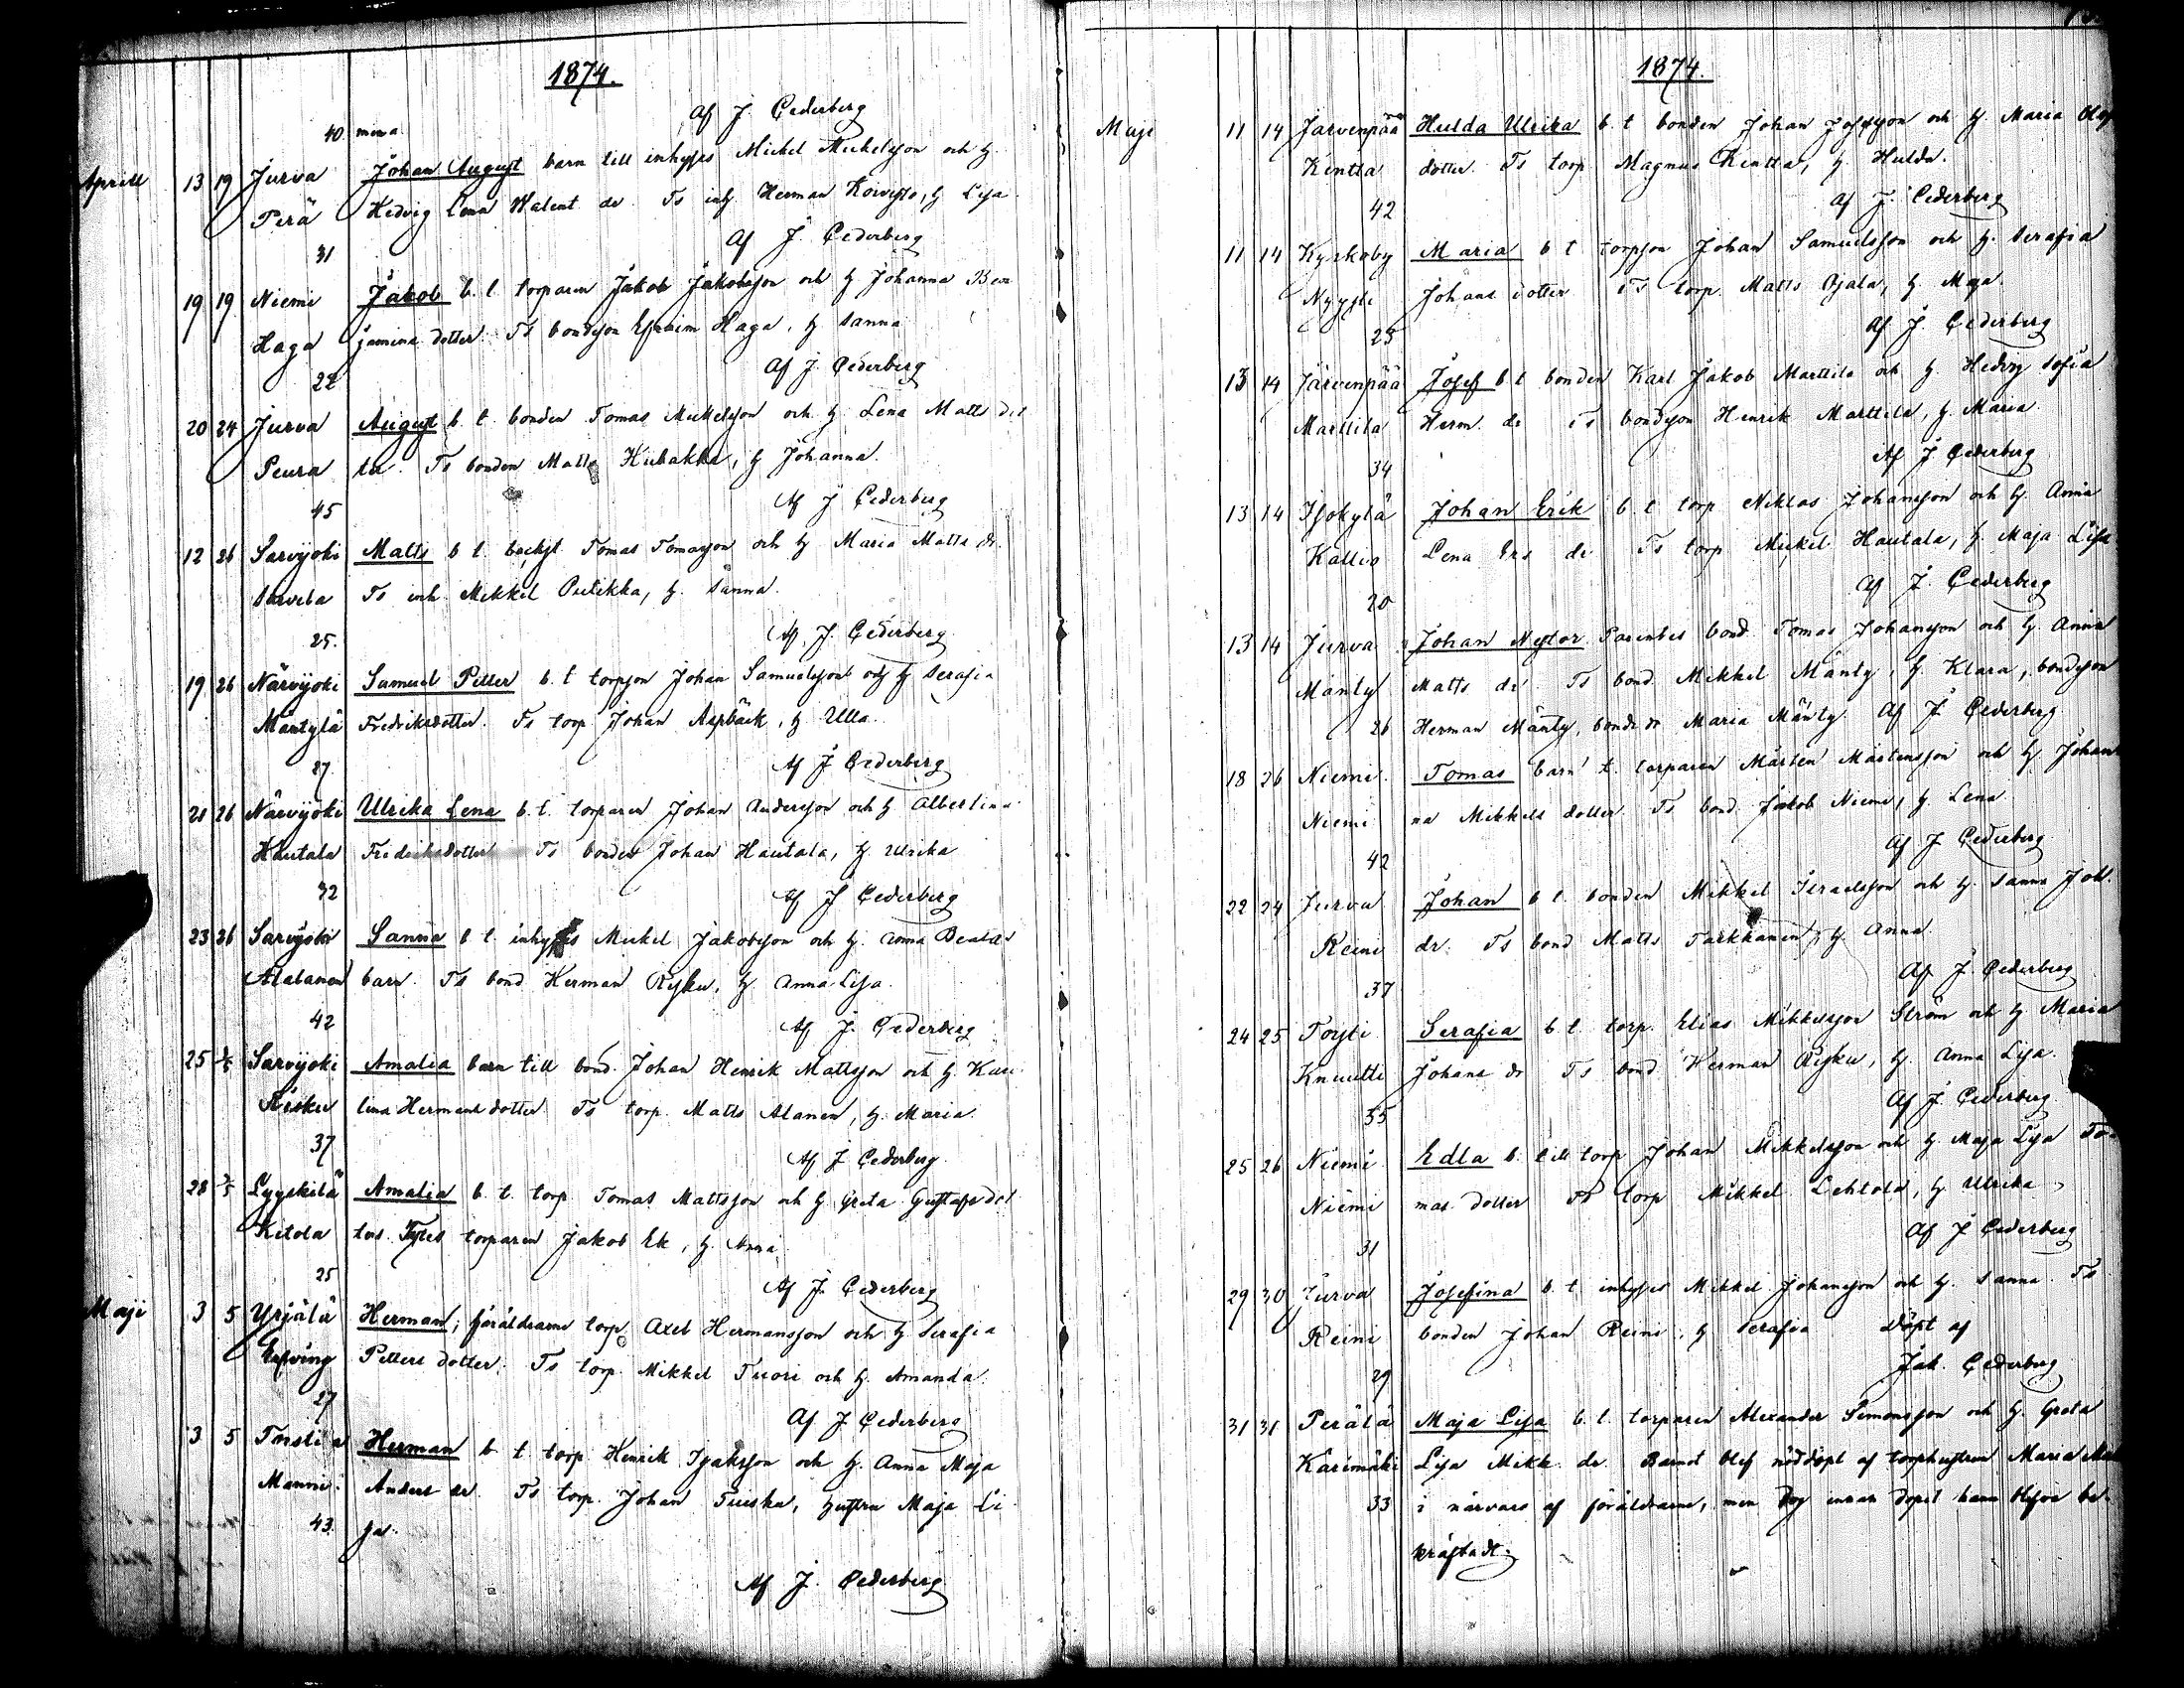 1874.
Af J. Cederberg
40. mina
Aprill 13 19 Jurva Johan August barn till inhyses Mickel Mickelsson och h.
Perä Hedvig Lena Walent. dr. Ts inh. Herman Koivisto, h. Lisa.
31 Af J. Cederberg
19 19 Niemi Jakob b. t. torparen Jakob Jakobsson och h. Johanna Ben
Haga jamins dotter. Ts bondson Efraim Haga, h. Sanna
22 Af J. Cederberg
20 24 Jurva August b. t. bonden Tomas Mickelsson och h. Lena Matts dot
Peura ter. Ts bonden Matts Hubakka, h. Johanna.
45 Af J. Cederberg
12 26 Sarvijoki Matts b. t. Tomas Tomasson och h. Maria Matts dr.
Ts inh. Mikkel h. Sanna.
25. Af J. Cederberg
19 26 Närvijoki Samuel Petter b. t. torpson Johan Samuelsson och h. Serafia
Mäntylä Fredriksdotter. Ts torp. Johan Aspbäck, h. Ulla.
27. Af J. Cederberg
21 26 Närvijoki Ulrika Lena b. t. torparen Johan Andersson och h. Albertina
Hautala Fredriksdotter Ts bonden Johan Hautala, h. Ulrika
32 Af J. Cederberg
23 26 Sarvijoki Sanna b. t. inhyses Mickel Jakobsson och h. Anna
barn. Ts bond Herman Rysku, h. Anna Lisa.
42 Af J. Cederberg
25 3/5 Sarvijoki Amalia barn till bond. Johan Henrik Mattsson och h. Karo
Risku lina Hermans dotter Ts torp. Matts Alanen, h. Maria.
37 Af J. Cederberg
28 3/5 Lyyskilä Amalia b. t. torp. Tomas Mattsson och h. Greta Gustafs dot
Ketola ter. torparen Jakob Ek, h. Anna
25 Af J. Cederberg
Maji 3 5 Yrjälä Herman, föräldrarne torp. Axel Hermansson och h. Serafia
Petters dotter. Ts torp. Mikkel Tuori och h. Amanda.
27 Af J. Cederberg
3 5 Herman b. t. torp. Henrik Isaksson och h. Anna Maja
Manni. Anders dr. Ts torp. Johan Tuiska, hustru Maja Li
43. sa.
Af J. Cederberg
1874.
Maji 11 14 Järvenpää Hulda Ulrika b. t. bonden Johan Josefsson och h. Maria
Kentta dotter. Ts torp. Magnus Kentta, h. Hulda.
42 Af J. Cederberg
11 14 Kyrkoby Maria b. t. torpson Johan Samuelsson och h. Serafia
Johans dotter Ts torp. Matts Ojala, h. Maja.
25 Af J. Cederberg
13 14 Järvenpää Josef b. t. bonden Karl Jakob Marttila och h. Hedvig Sofia
Marttila Herm. dr Ts bondson Henrik Marttila, h. Maria.
34 Af J. Cederberg
13 14 Isokylä Johan Erik b. t. torp. Niklas Johansson och h. Anna
Kallio Lena Ers dr. Ts torp. Mickel Hautala, h. Maja Lisa
20 Af J. Cederberg
13 14 Jurva Johan Nestor bond. Tomas Johansson och h. Anna
Mänty Matts dr. Ts bond. Mikkel Mänty, h. Klara, bondson
26 Herman Mänty, bonde dr Maria Mänty. Af J. Cederberg
18 26 Niemi Tomas barn t. torparen Mårten Mårtensson och h. Johan
Niemi na Mikkels dotter. Ts bond. Jakob Niemi, h. Lena.
42 Af J. Cederberg
22 24 Jurva Johan b. t. bonden Mikkel Israelsson och h. Sanna Joh.
Reini dr. Ts bond Matts Tarkkanen, h. Anna.
37 Af J. Cederberg
24 25 Serafia b. t. torp. Elias Mikkelsson Ström och h. Maria
Knuutti Johans dr Ts bond Herman Rysku, h. Anna Lisa.
35 Af J. Cederberg
25 26 Niemi Edla b. till torp Johan Mikkelsson och h. Maja Lisa To-
Niemi mas dotter Ts torp Mikkel Lehtola, h. Ulrika
31 Af J. Cederberg
29 30 Jurva Josefina b. t. inhyses Mikkel Johansson och h. Sanna. Ts
Reini bonden Johan Reini, h. Serafia Döpt af
29 Jak. Cederberg
31 31 Perälä Maja Lisa b. t. torparen Alexander Simonsson och h. Greta
Karimäki Lisa Mikk. dr. Barnet blef nöddöpt af torphustrun Maria
33 i närvaro af föräldrarne, men dog innan dopet hann blifva be-
kräftadt.